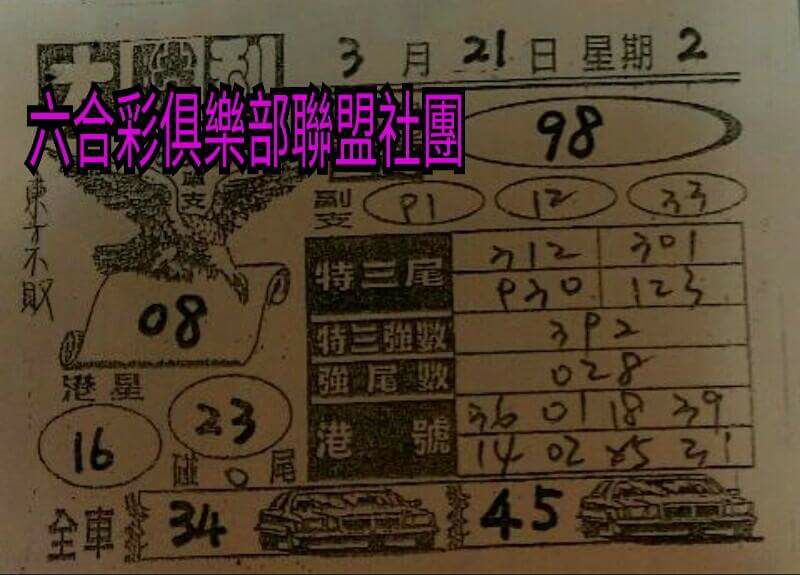 大 利
3月21日星期2
六合彩俱樂部聯盟社團
98
東方不敗
支
副支 91 12 33
特三尾 312 301
930 123
08
特三強數 392
強尾數 028
港星
16 23
碰0尾
港號 36 01 18 39
14 02 25 31
全車 34 45